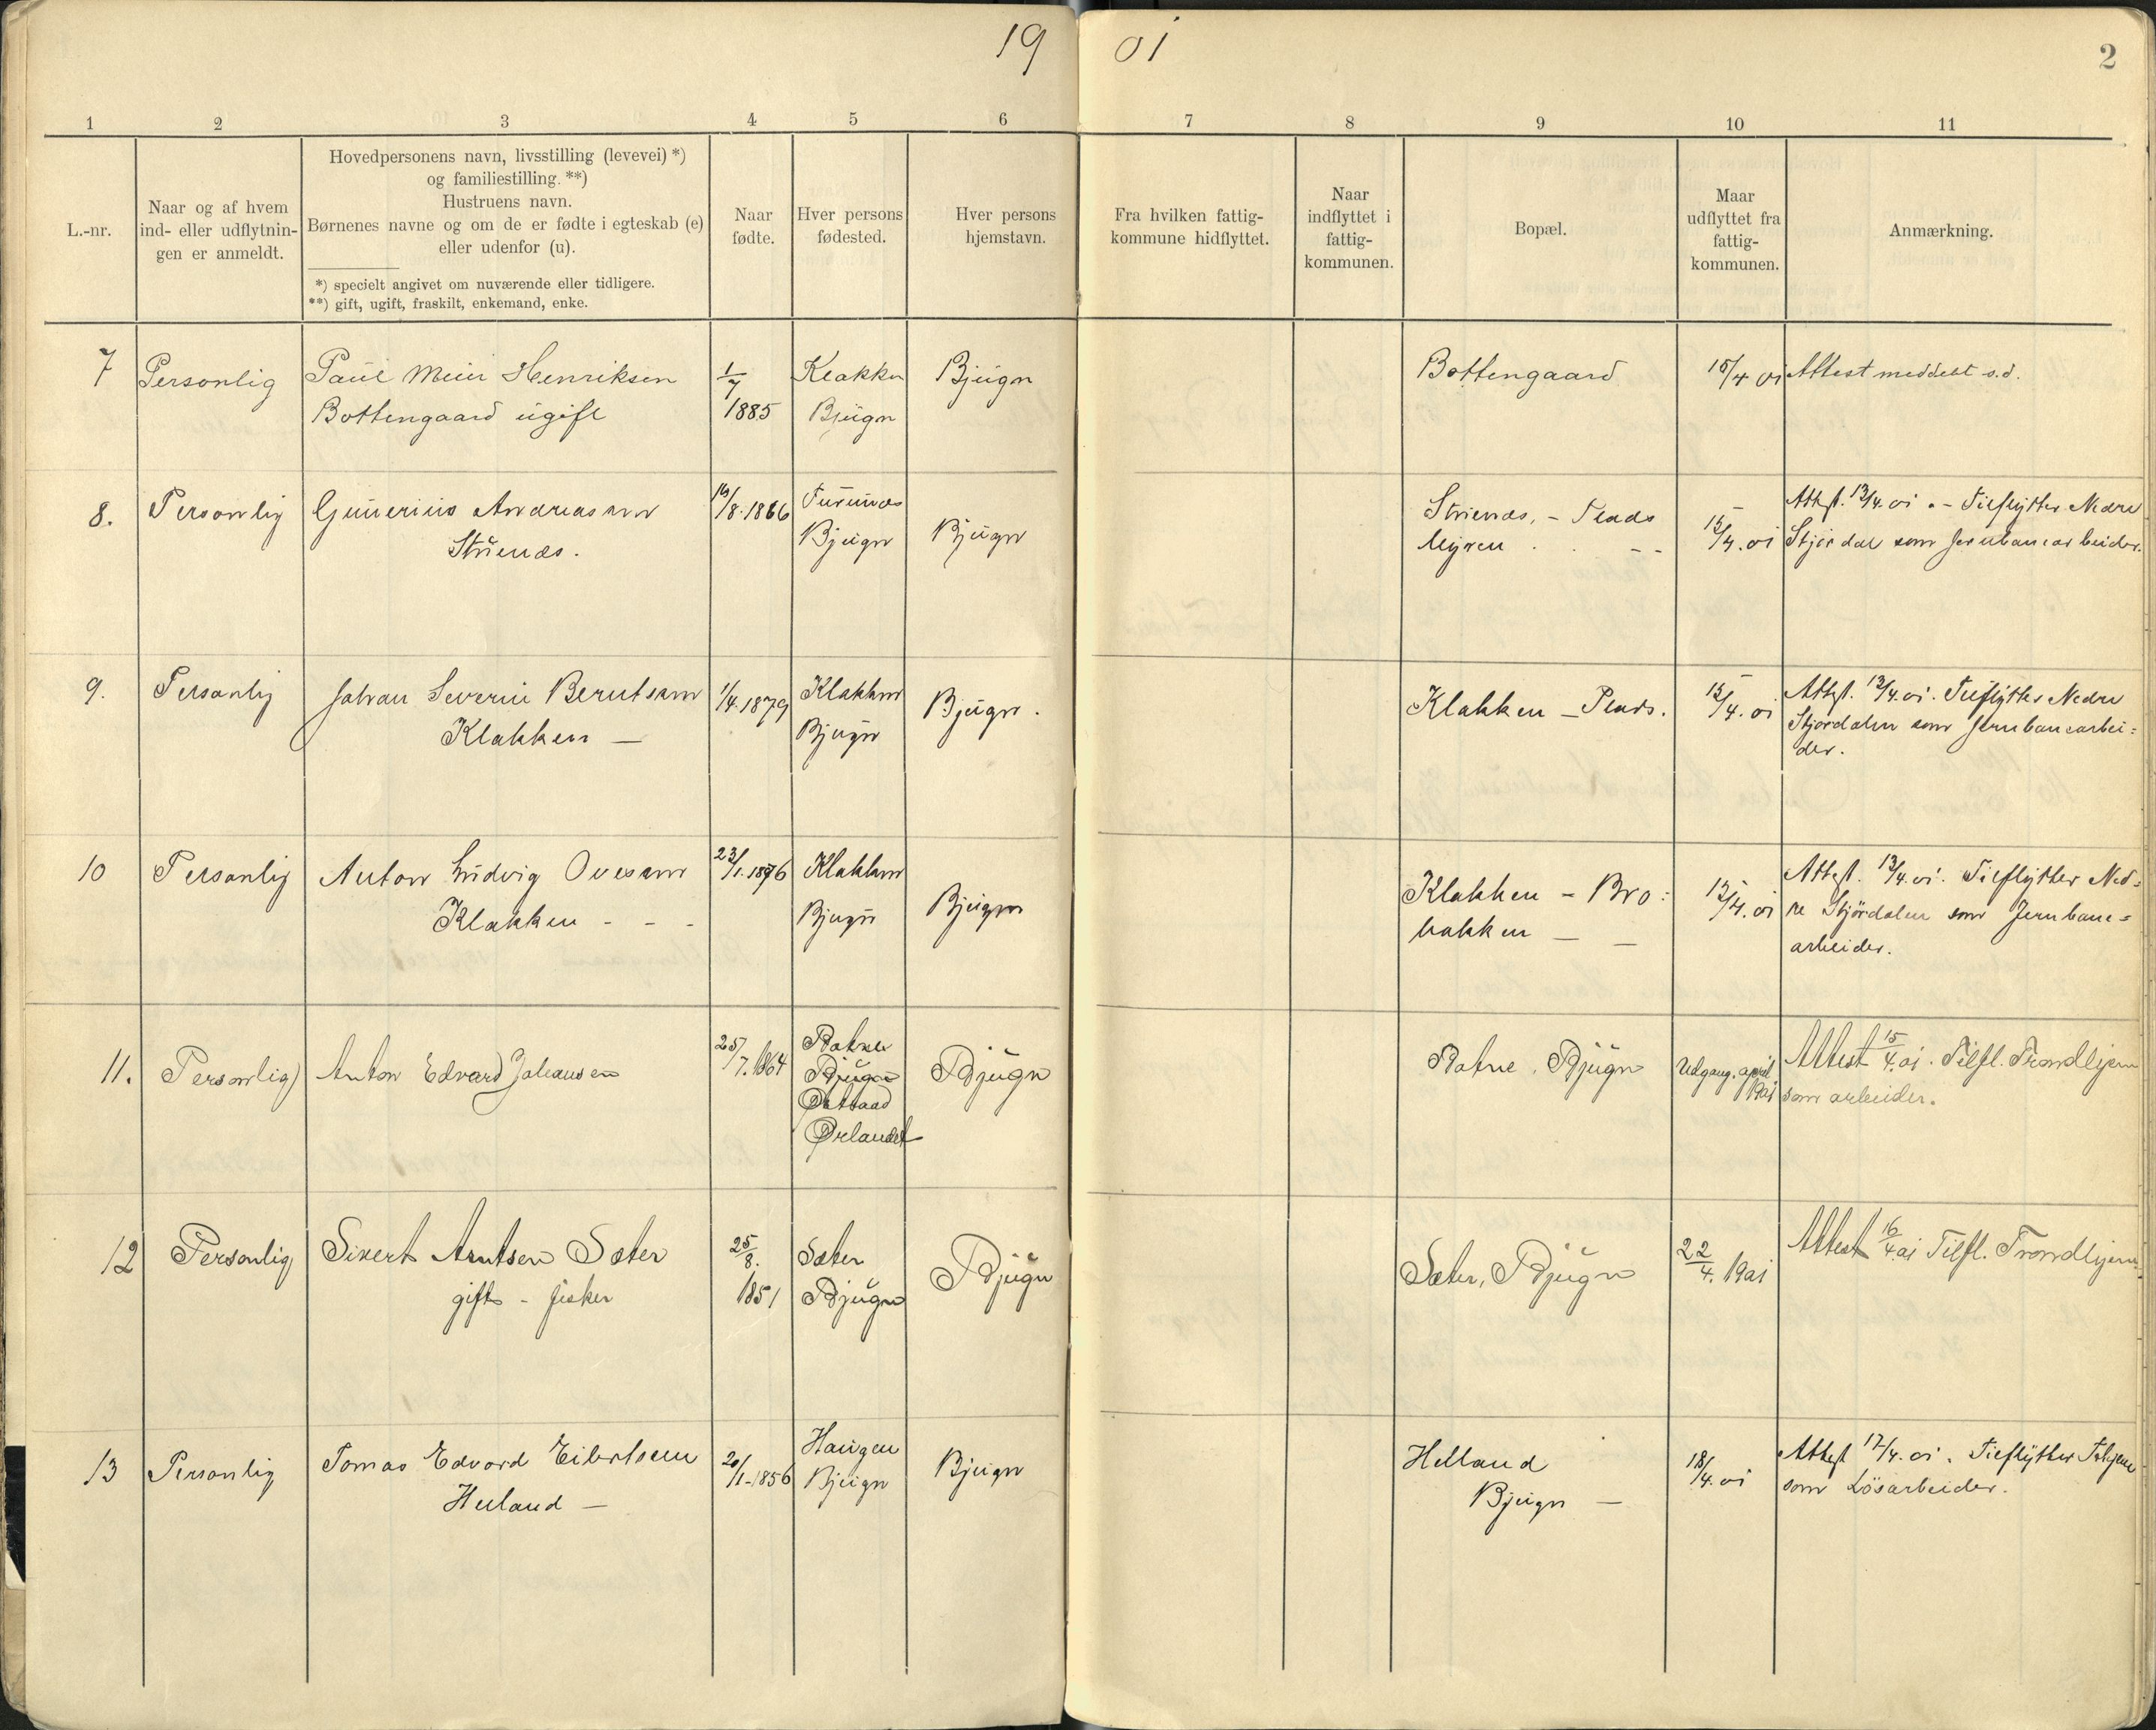 19 01
2
1 2 3 4 5 6 7 8 9 10 11
L.-nr.
Naar og af hvem
ind- eller udflytnin-
gen er anmeldt.
Hovedpersonens navn, livsstilling (levevei) *)
og familiestilling. **)
Hustruens navn.
Børnenes navne og om de er fødte i egteskab (e)
eller udenfor (u).
*) specielt angivet om nuværende eller tidligere.
**) gift, ugift, fraskilt, enkemand, enke.
Naar
fødte.
Hver persons
fødested.
Hver persons
hjemstavn.
Fra hvilken fattig-
kommune hidflyttet.
Naar
indflyttet i
fattig-
kommunen.
Bopæl.
Maar
udflyttet fra
fattig-
kommunen.
Anmærkning.
7
Personlig
Paul Henriksen
Bottengaard ugift
1/7
1885
Klakken
Bjugn
Bjugn
Bottengaard
15/4 01
Attest meddelt s.d.
8.
Personlig
Gunerius Andreassen
/8. 1866
Bjugn
Bjugn
– Plads
Myren . . – –
15/4. 01
Attest. 13/4. 01. – Tilflytter Nedre
Stjørdal som Jernbanearbeider.
9.
Personlig
Johan Severin Berntsen
Klakken –
1/4. 1879
Klakken
Bjugn
Bjugn.
Klakken – Plads.
15/4. 01
Attest. 13/4. 01. Tilflytter Nedre
Stjørdalen som Jernbanearbei=
der.
10
Personlig
Anton Ludvig Ovesen
Klakken - - -
23/1. 1876
Klakken
Bjugn
Bjugn
Klakken – Bro=
bakken – –
15/4. 01
Attest. 13/4. 01. Tilflytter Ned=
re Stjördalen som Jernbane=
arbeider.
11.
Personlig
Anton Edvard Johansen
25/7. 1864
Botne
Bjugn
Ørlandet
Bjugn
Botne, Bjugn
Udgang. april
1901
Attest 15/4. 01. Tilfl. Trondhjem
som arbeider.
12
Personlig
Sivert Arntsen Sæter
gift – fisker
25/8.
1851
Sæter
Bjugn
Bjugn
Sæter, Bjugn
22/4. 1901
Attest 16/4. 01 Tilfl. Trondhjem
13
Personlig
Tomas Edvard Eilertsen
Helland –
20/1 - 1856
Haugen
Bjugn
Bjugn
Helland
Bjugn –
18/4. 01
Attest 17/4. 01. Tilflytter Tr.hjem
som Lösarbeider.